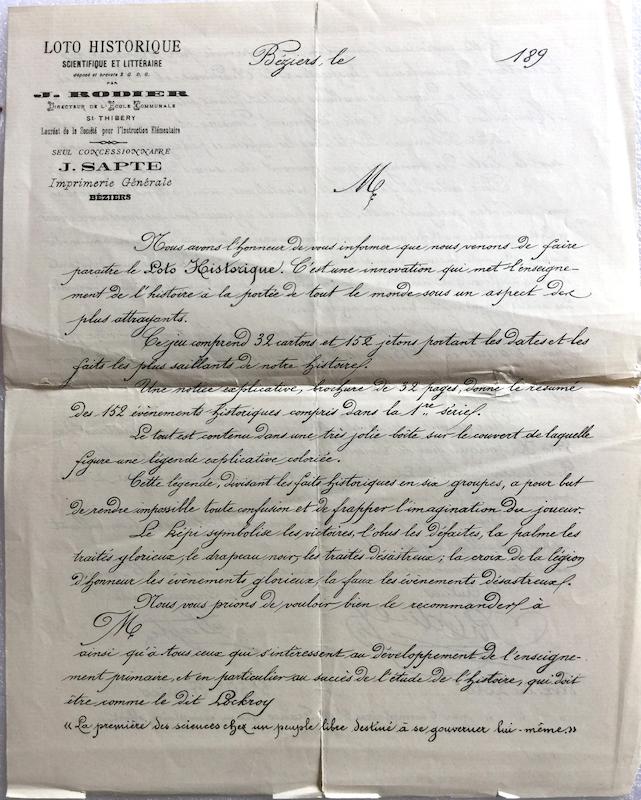 LOTO HISTORIQUE
SCIENTIFIQUE ET LITTÉRAIRE
déposé et breveté S. G. D. G.
PAR
J. RODIER
DIRECTEUR DE L'ÉCOLE COMMUNALE
ST THIBÉRY
Lauréat de la Société pour l'Instruction Élémentaire
SEUL CONCESSIONNAIRE
J. SAPTE
Imprimerie Générale
BÉZIERS
Béziers, le 189
M
Nous avons l'honneur de vous informer que nous venons de faire
paraître le Loto Historique. C'est une innovation qui met l'enseigne-
ment de l'histoire à la portée de tout le monde sous un aspect des
plus attrayants.
Ce jeu comprend 32 cartons et 152 jetons portant les dates et les
faits les plus saillants de notre histoire.
Une notice explicative, brochure de 32 pages, donne le résumé
des 152 évènements historiques compris dans la 1re série.
Le tout est contenu dans une très jolie boîte sur le couvert de laquelle
figure une légende explicative coloriée.
Cette légende, divisant les faits historiques en six groupes, a pour but
de rendre impossible toute confusion et de frapper l'imagination du joueur.
Le képi symbolise les victoires, l'obus les défaites, la palme les
traités glorieux, le drapeau noir, les traités désastreux; la croix de la légion
d'honneur les évènements glorieux, la faux les évènements désastreux.
Nous vous prions de vouloir bien le recommander à
M
ainsi qu'à tous ceux qui s'intéressent au développement de l'enseigne-
ment primaire, et en particulier au succès de l'étude de l'histoire, qui doit
être comme le dit Lockroy
« La première des sciences chez un peuple libre destiné à se gouverner lui-même.»